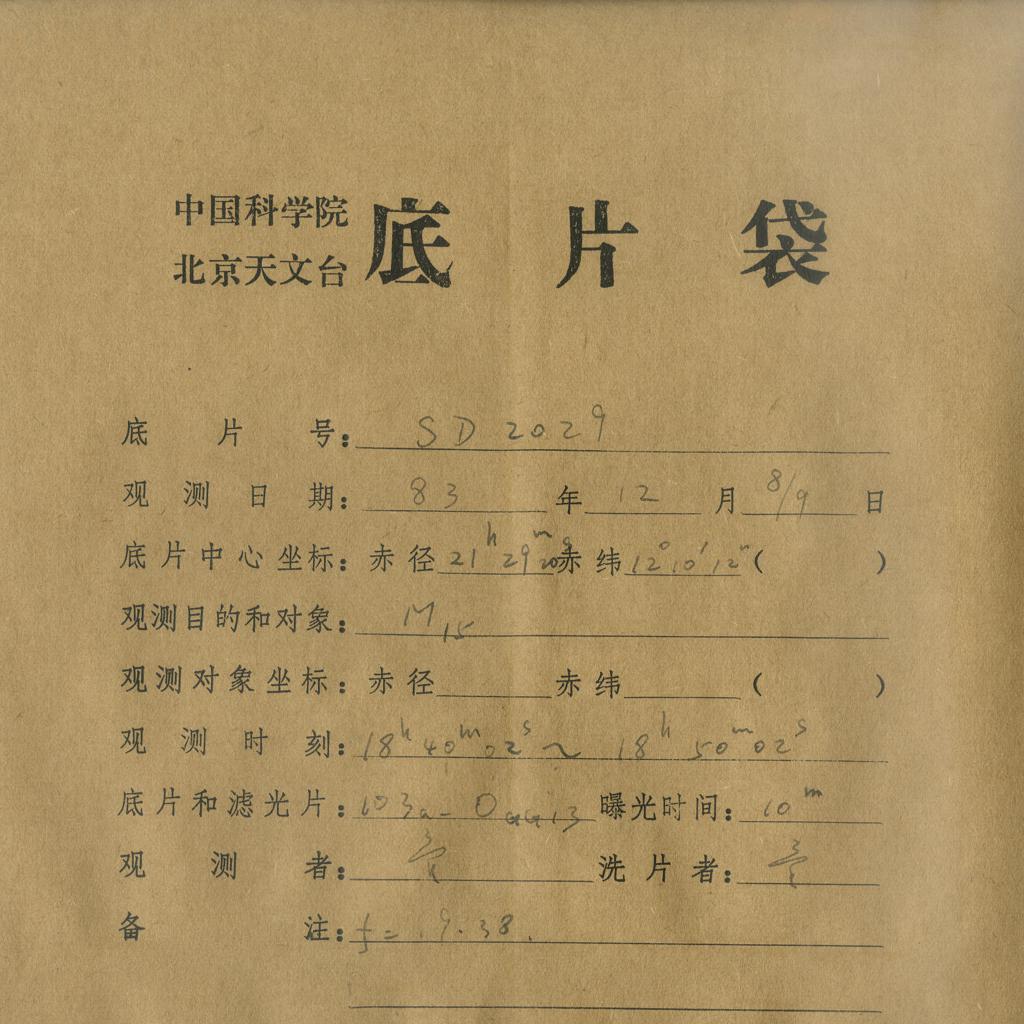 中国科学院
北京天文台
底片袋
底片号：SD 2029
观测日期：83年12月8/9日
底片中心坐标：赤径21h29m20s赤纬12°10′12″（ ）
观测目的和对象：M15
观测对象坐标：赤径 赤纬 （ ）
观测时刻：18h40m02s～18h50m02s
底片和滤光片：103a-O GG13 曝光时间：10m
观测者： 洗片者：
备注：f = 19.38.